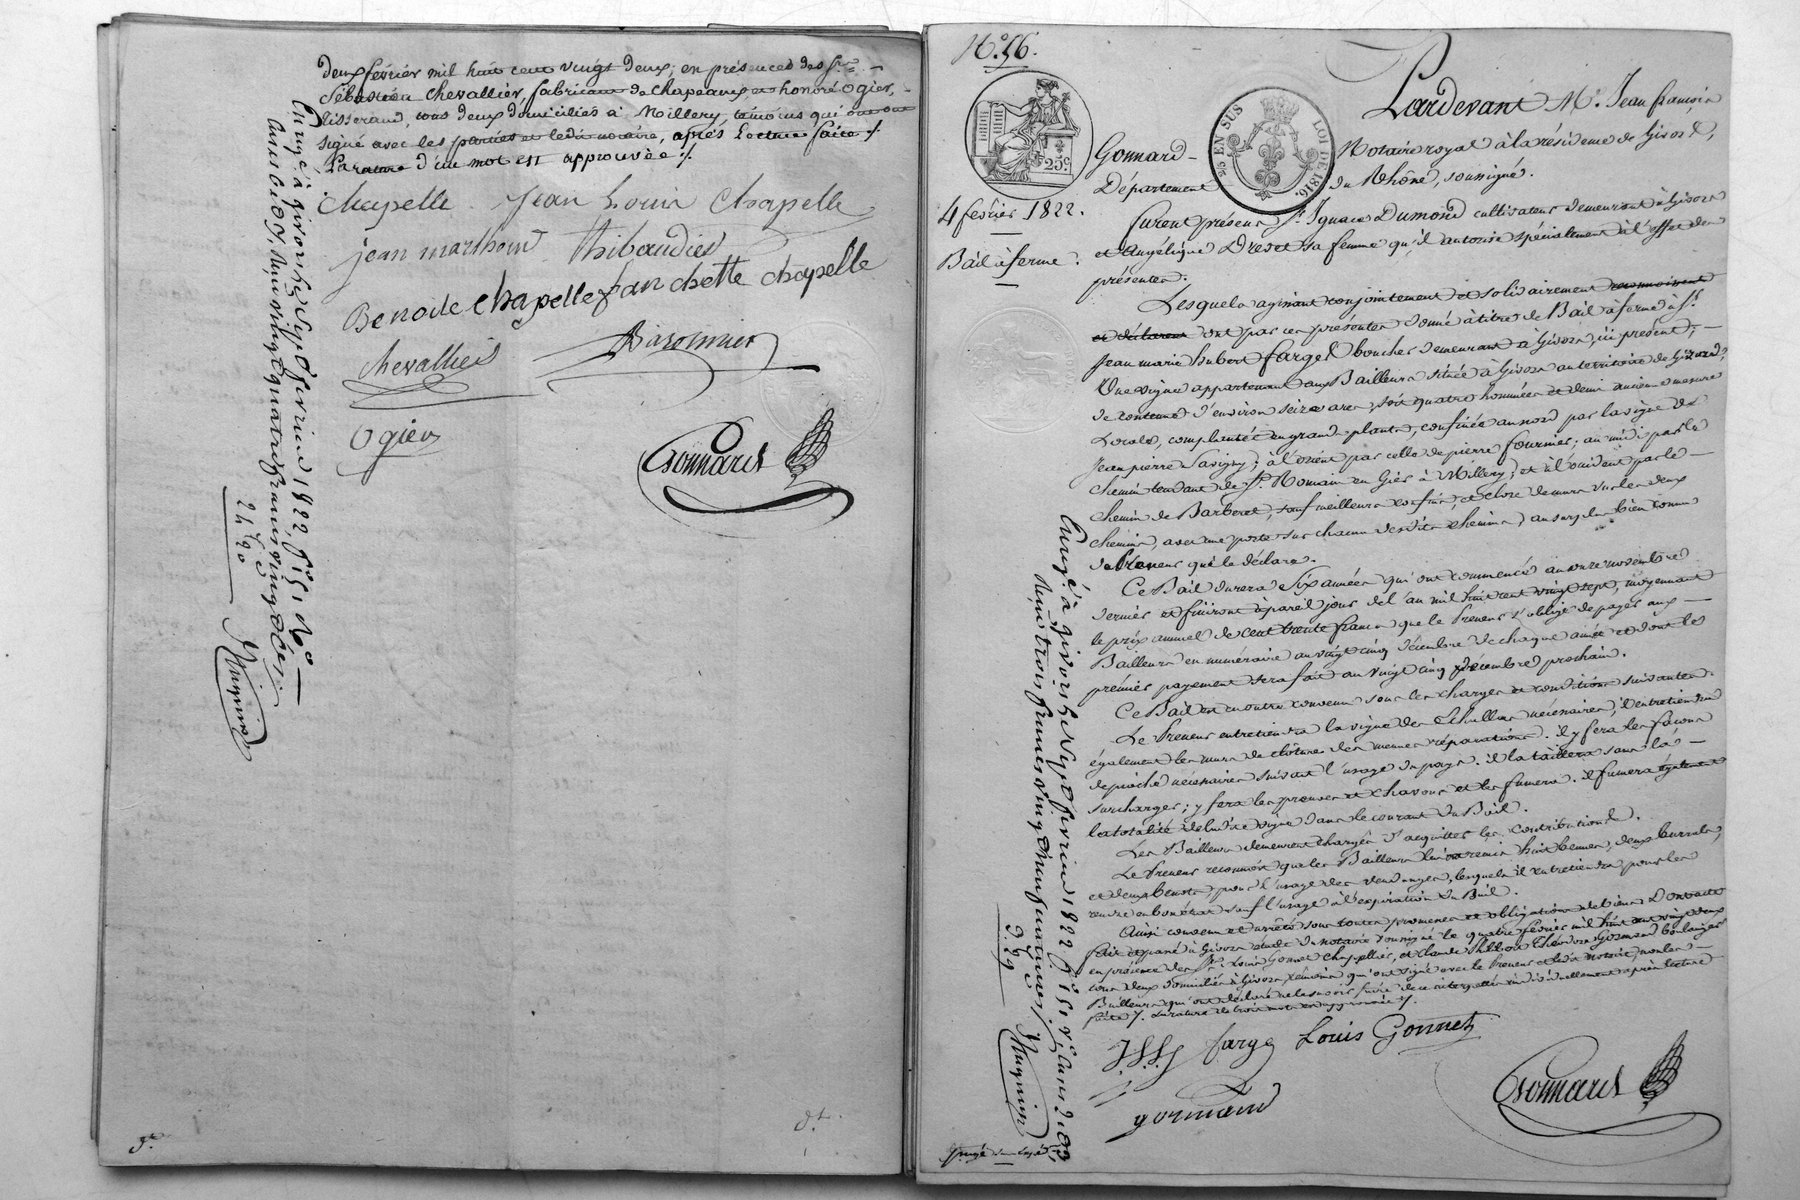 deux février mil huit cent vingt deux; en présences des Srs
Sébastien Chevallier, fabricant de chapeaux et honoré Ogier,
tisserand, tous deux domiciliés à Millery, témoins qui ont
signé avec les parties et ledit notaire, après lecture faite ./.
La rature d'un mot est approuvée ./.
Chapelle Jean Louis Chapelle
jean marthoud Thibaudier
Benoite chapelle fanchette chapelle
Chevallier
Ogier
Gonnard
Enregé à givors le Sept février 1822, fo
vingt quatre francs vingt
24 f. 20
N° 56.
25c.
25 EN SUS LOI DE 1816.
4 février 1822.
Bail à ferme.
Pardevant Me. Jean françois
Gonnard Notaire royal à la résidence de Givors,
Département du Rhône, soussigné.
furent présens Sr. Ignace Dumond cultivateur demeurant à Givors
et Angélique Drevet sa femme qu'il autorise spécialement à l'effet des
présentes.
Lesquels agissant conjointement et solidairement reconnoissent
et déclarent ont par ces présentes donné à titre de Bail à ferme à Sr.
Jean marie hubert farge boucher demeurant à Givors, ici présent,
Une vigne appartenant aux Bailleurs située à Givors au territoire de
de contenue d'environ seize ares, soit quatre hommées et demi ancienne mesure
Locale, complantée en grands plants, confinée au nord par la vigne de
Jean pierre Savigny; à l'orient par celle de pierre fournier; au midi par le
chemin tendant de St. Romain en Gier à Millery; et à l'occident par le
chemin de Barberet, sauf meilleurs confins, et close de murs sur les deux
chemins, avec une porte sur chacun desdits chemins, au surplus bien connu
du Preneur qui le déclare.
Ce Bail durera Six années qui ont commencé au onze novembre
dernier et finiront à pareil jour de l'an mil huit cent vingt sept, moyennant
le prix annuel de cent trente francs que le Preneur s'oblige de payer aux
Bailleurs en numéraire au vingt cinq décembre de chaque année et dont le
premier payement sera fait au vingt cinq décembre prochain.
Ce Bail est en outre convenu sous les charges et conditions suivantes.
Le Preneur entretiendra la vigne des échallas nécessaires; il entretiendra
également les murs de clôture des menues réparations. il y fera les façons
de pioche nécessaires suivant l'usage du pays. il la taillera sans la
surcharger; y fera les provins et chavons et les fumera. il fumera également
la totalité de ladite vigne dans le courant du Bail.
Les Bailleurs demeurent chargés d'acquitter les Contributions.
Le Preneur reconnoit que les Bailleurs lui ont remis huit bennes, deux barrals,
et deux benots, pour l'usage des vendanges, lesquels il entretiendra pour les
rendre en bon état sauf l'usage à l'expiration du Bail.
Ainsi convenu et arrêté sous toutes promesses et obligations de biens Dont acte
fait et passé à Givors étude du notaire soussigné le quatre février mil huit cent vingt deux
en présence des Srs. Louis Gonnet Chapellier, et Claude Théodore Gormand boulanger
tous deux domiciliés à Givors, témoins qui ont signé avec le Preneur et ledit notaire, non les
Bailleurs qui ont déclaré ne le savoir faire de ce interpellés individuellement après lecture
faite ./. La rature de trois mots est approuvée ./.
farge Louis Gonnet
gormand
Gonnard
Enregé à givors le Sept février 1822 fo
3. 29